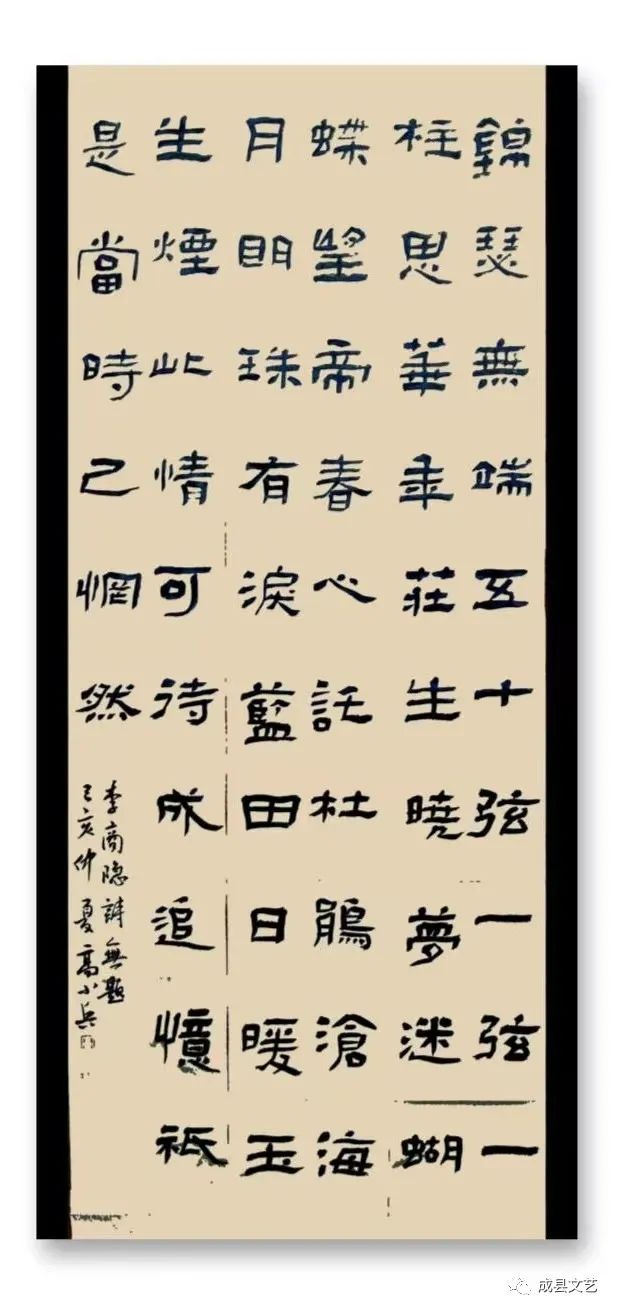 錦瑟無端五十弦一弦一
柱思華年莊生曉夢迷蝴
蝶望帝春心託杜鵑滄海
月明珠有淚藍田日暖玉
生煙此情可待成追憶祇
是當時已惘然
李商隐詩無題
己亥仲夏高小兵
成县文艺